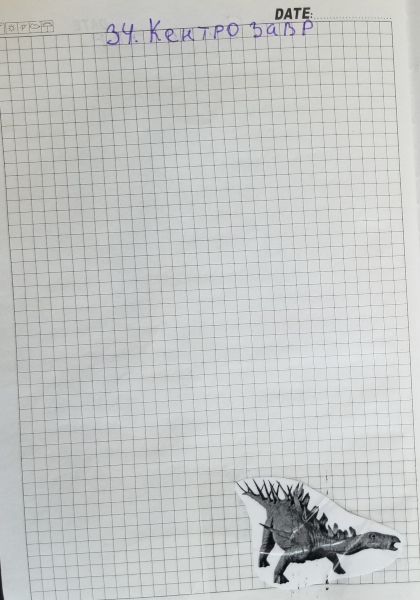 DATE:
34. Кентрозавр